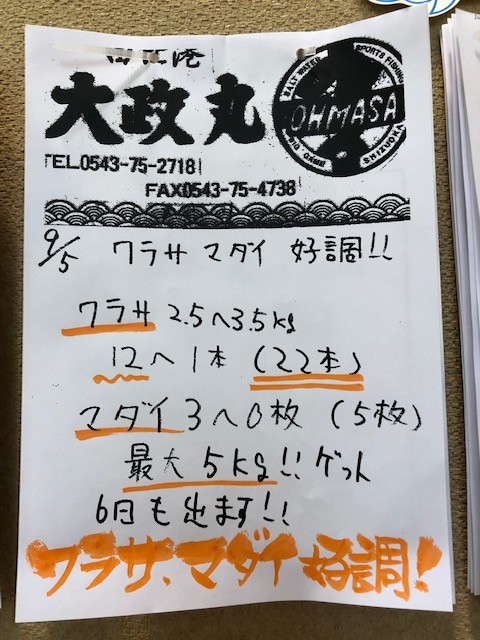 港
大政丸
SALT WATER SPORTS FISHING
OHMASA
BIG GAME SHIZUOKA
TEL.0543-75-2718
FAX0543-75-4738
9/5 ワラサ マダイ 好調!!
ワラサ 2.5〜3.5kg
12〜1本 (22本)
マダイ 3〜0枚 (5枚)
最大 5kg!! ゲット
6日も出ます!!
ワラサ、マダイ 好調!